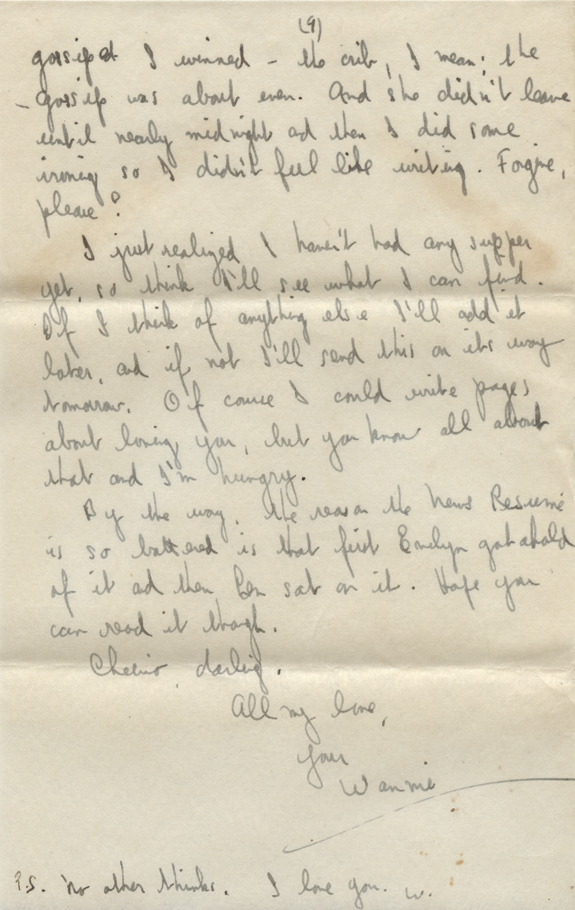 (9)
gossiped I winned - the crib, I mean; the
- gossip was about even. And she didn't leave
until nearly midnight ad then I did some
ironing so I didn't feel like writing. Forgive,
please?
I just realized I haven't had any supper
yet, so think I'll see what I can find.
If I think of anything else I'll add it
later, and if not I'll send this on its way
tomorrow. Of course I could write pages
about loving you, but you know all about
that and I'm hungry.
By the way, the reason the News Resumé
is so battered is that first Emelyn got ahold
of it ad then Ben sat on it. Hope you
can read it though.
Cheerio, darling.
All my love,
Your
Wannie
P.S. No other thinks. I love you. W.